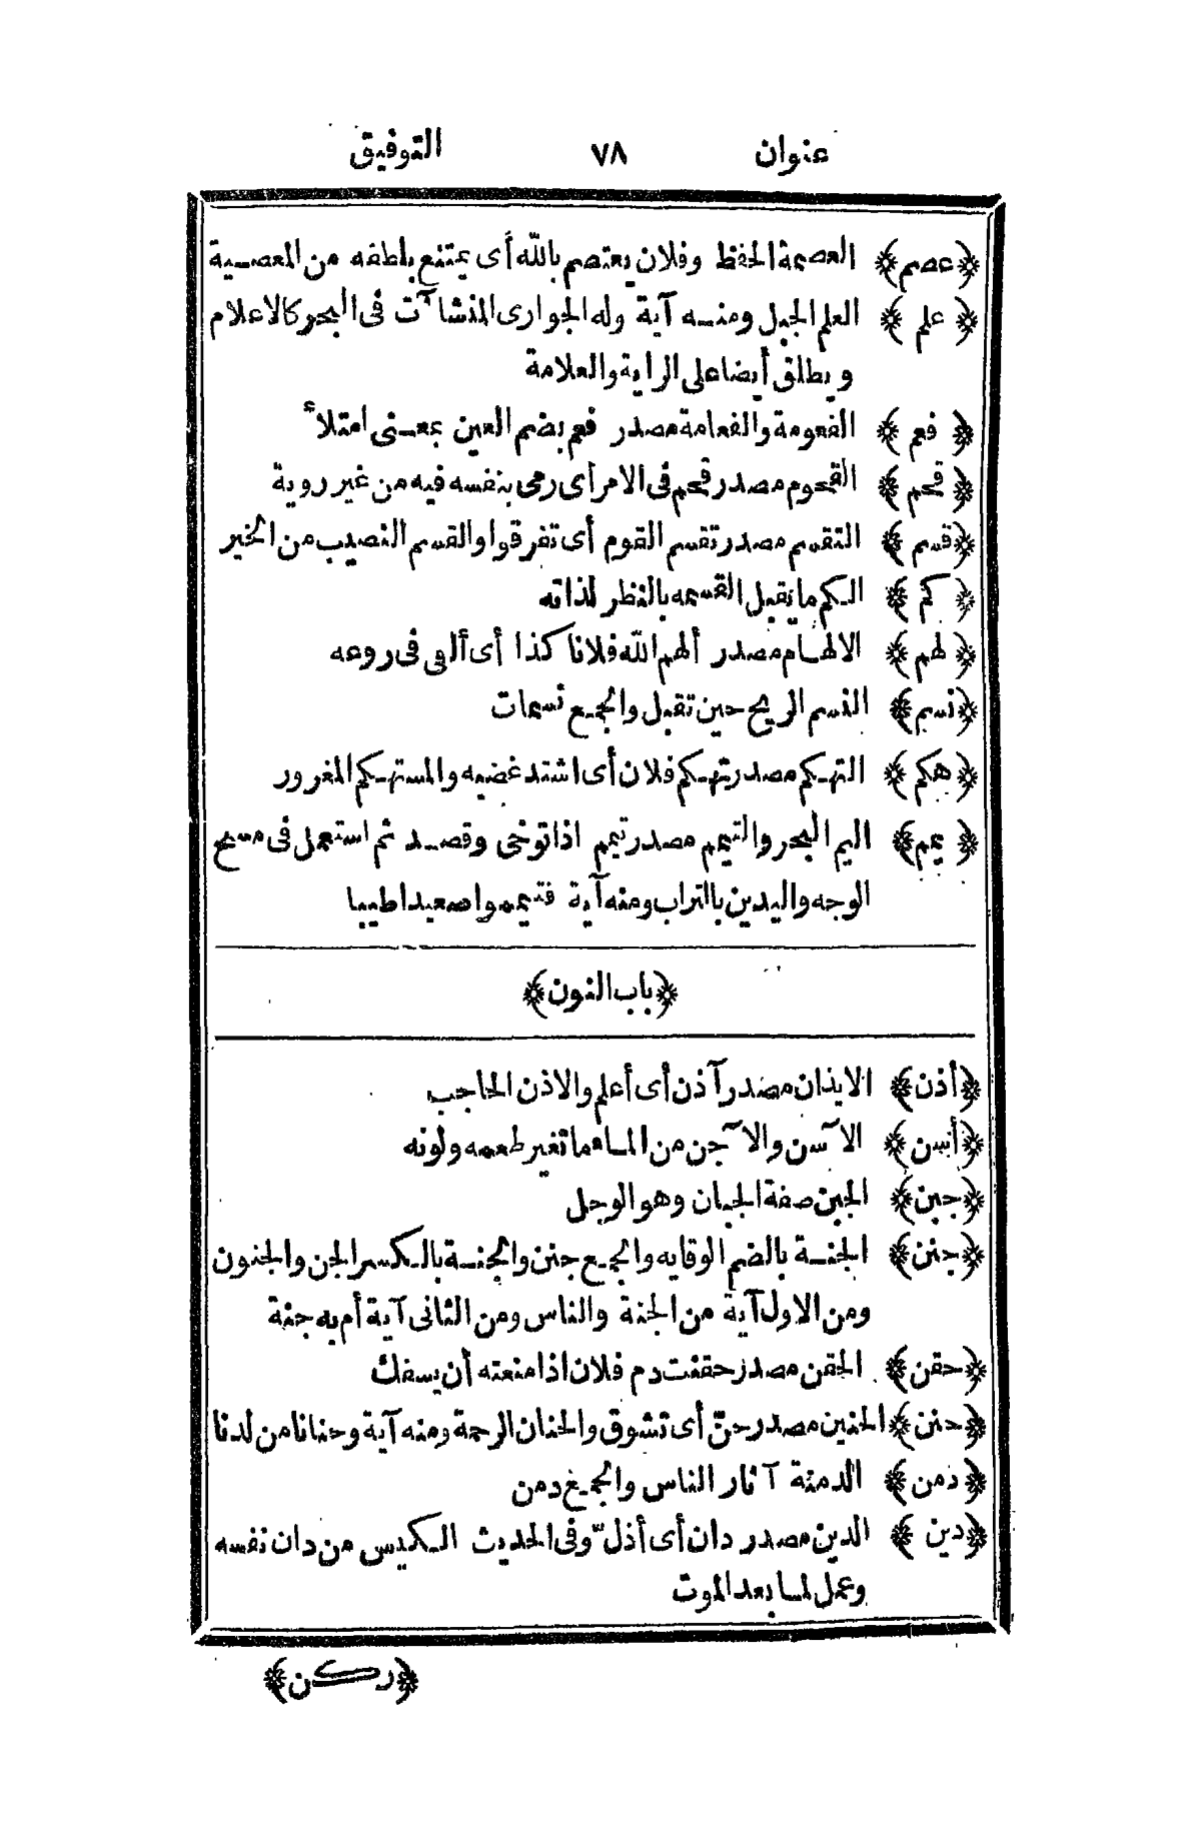 عنوان ٧٨ التوفيق
﴿عصم﴾ العصمة الحفظ وفلان يعتصم بالله أى يمتنع بلطفه من المعصية
﴿علم﴾ العلم الجبل ومنه آية وله الجوارى المنشآت فى البحر كالاعلام
ويطلق أيضا على الراية والعلامة
﴿فعم﴾ الفعومة والفعامة مصدر فعم بضم العين بمعنى امتلأ
﴿قحم﴾ القحوم مصدر قحم فى الامر أى رمى بنفسه فيه من غير روية
﴿قسم﴾ التقسم مصدر تقسم القوم أى تفرقوا والقسم النصيب من الخير
﴿كم﴾ الكم ما يقبل القسمه بالنظر لذاته
﴿لهم﴾ الالهام مصدر ألهم الله فلانا كذا أى ألقى فى روعه
﴿نسم﴾ النسم الريح حين تقبل والجمع نسمات
﴿هكم﴾ التهكم مصدر تهكم فلان أى اشتد غضبه والمستهكم المغرور
﴿يمم﴾ اليم البحر والتيمم مصدر تيمم اذا توخى وقصد ثم استعمل فى مسح
الوجه واليدين بالتراب ومنه آية فتيمموا صعيدا طيبا
﴿باب النون﴾
﴿أذن﴾ الايذان مصدر آذن أى أعلم والاذن الحاجب
﴿أسن﴾ الآسن والآجن من الماء ما تغير طعمه ولونه
﴿جبن﴾ الجبن صفة الجبان وهو الوجل
﴿جنن﴾ الجنة بالضم الوقايه والجمع جنن والجنة بالكسر الجن والجنون
ومن الاول آية من الجنة والناس ومن الثانى آية أم به جنة
﴿حقن﴾ الحقن مصدر حقنت دم فلان اذا منعته أن يسفك
﴿حنن﴾ الحنين مصدر حنّ أى تشوق والحنان الرحمة ومنه آية وحنانا من لدنا
﴿دمن﴾ الدمنة آثار الناس والجمع دمن
﴿دين﴾ الدين مصدر دان أى أذلّ وفى الحديث الكيس من دان نفسه
وعمل لما بعد الموت
﴿ركن﴾